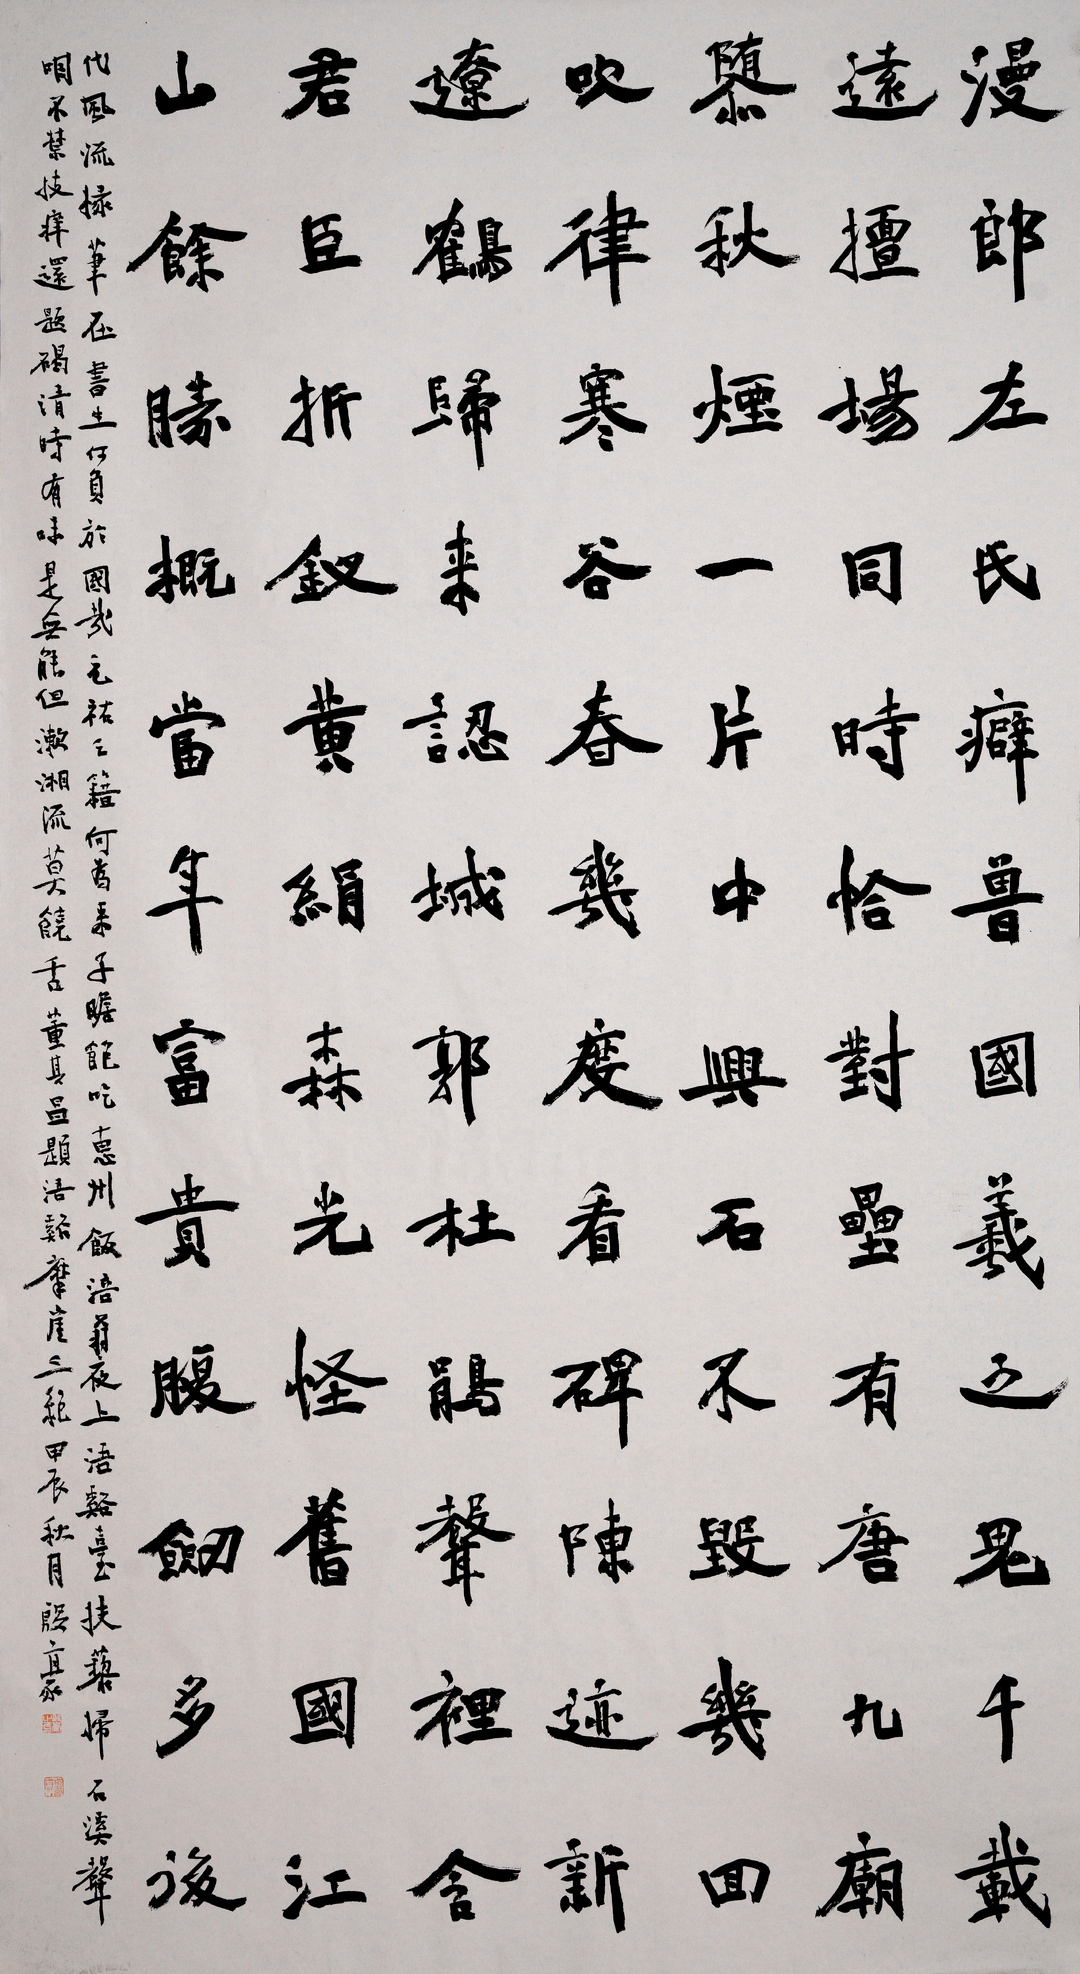 漫郎左氏癖魯國羲之鬼千載
遠擅場同時恰對壘有唐九廟
隳秋煙一片中興石不毀幾回
吹律寒谷春幾度看碑陳迹新
遼鶴歸来認城郭杜鵑聲裡含
君臣折釵黃絹森光怪舊國江
山餘勝概當年富貴腹劒多後
代風流椽筆在書生何負於國哉元祐之籍何為来子瞻飽吃惠州飯涪翁夜上浯谿臺扶藜掃石溪聲
咽不禁技痒還題碣清時有味是無能但漱湘流莫饒舌董其昌題浯谿摩崖三絕甲辰秋月殷豪